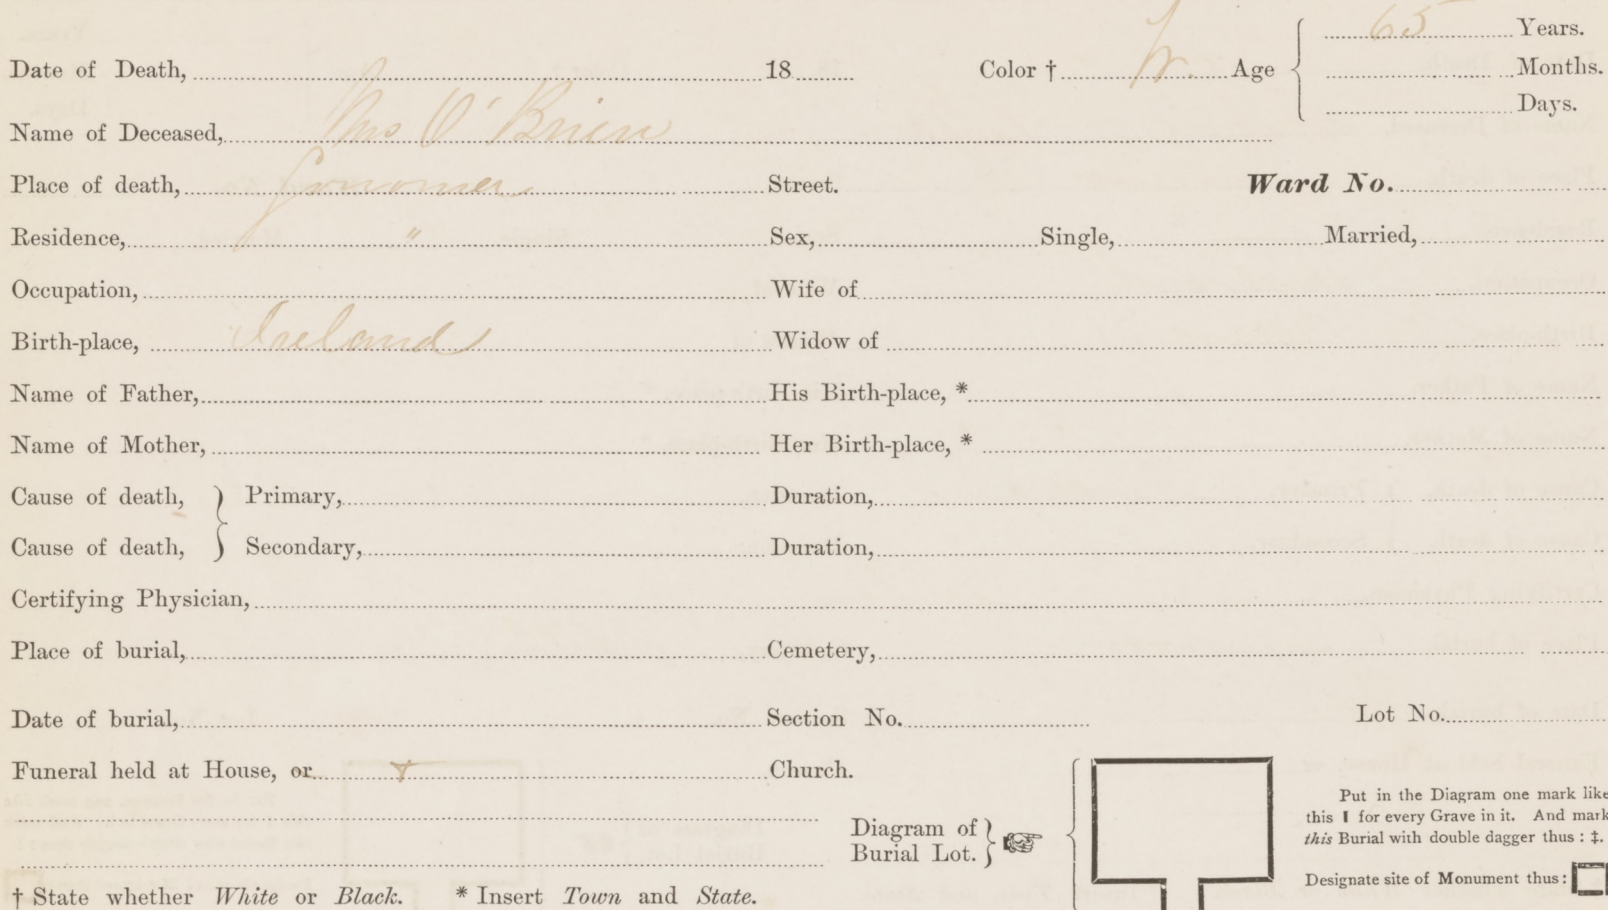 Date of Death, 18 Color † W. Age 65 Years.
Months.
Days.
Name of Deceased, Mrs O'Brien
Place of death, Street. Ward No.
Residence, " Sex, Single, Married,
Occupation, Wife of
Birth-place, Ireland Widow of
Name of Father, His Birth-place, *
Name of Mother, Her Birth-place, *
Cause of death, } Primary, Duration,
Cause of death, } Secondary, Duration,
Certifying Physician,
Place of burial, Cemetery,
Date of burial, Section No. Lot No.
Funeral held at House, or Church.
Diagram of
Burial Lot. }
Put in the Diagram one mark like
this I for every Grave in it. And mark
this Burial with double dagger thus : ‡.
Designate site of Monument thus :
† State whether White or Black. * Insert Town and State.